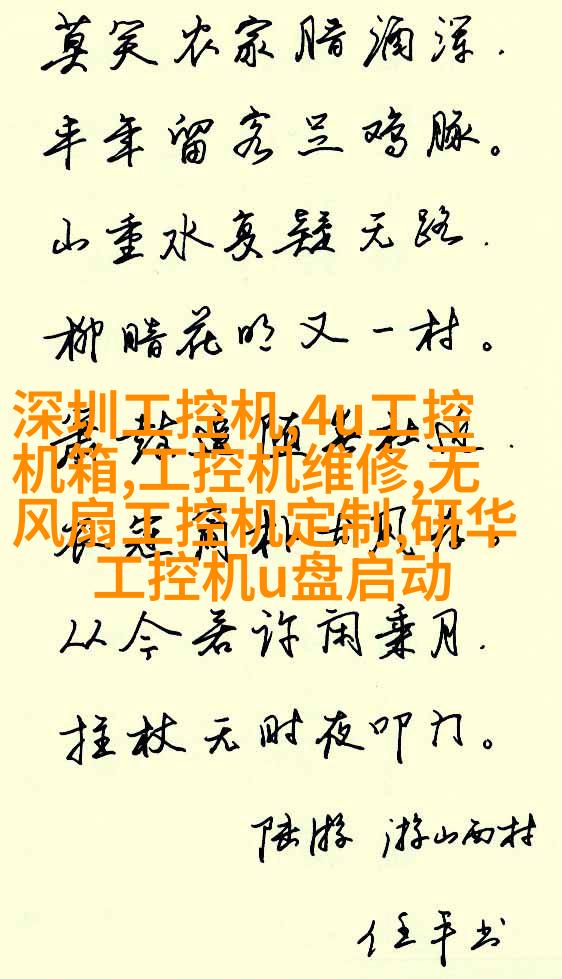 莫笑农家腊酒浑.
丰年留客足鸡豚。
山重水复疑无路.
柳暗花明又一村。
深圳工控机,4u工控
机箱,工控机维修,无
风扇工控机定制,研华
工控机u盘启动
箫鼓追随春社近.
衣冠简朴古风存。
从今若许闲乘月.
拄杖无时夜叩门。
陆游 游山西村
任平书